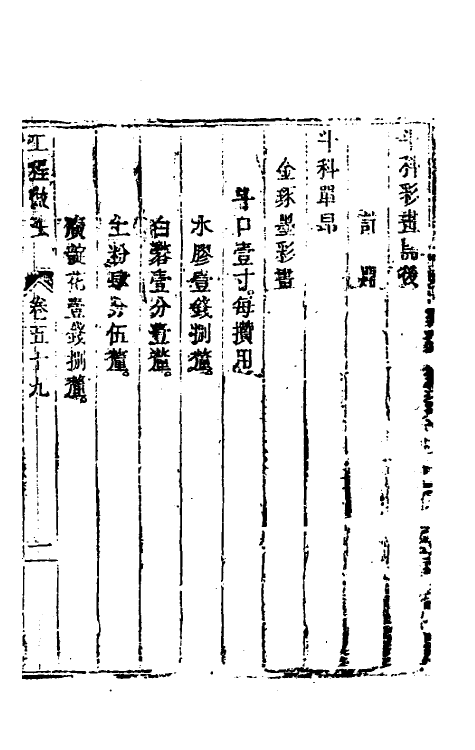 斗科彩畫開後
計開
斗科單昂
金琢墨彩畫
斗口壹寸。每攢用
水膠壹錢捌釐。
白礬壹分伍釐。
土粉肆分伍釐。
廣靛花壹錢捌釐。
工程做法 卷五十九 一